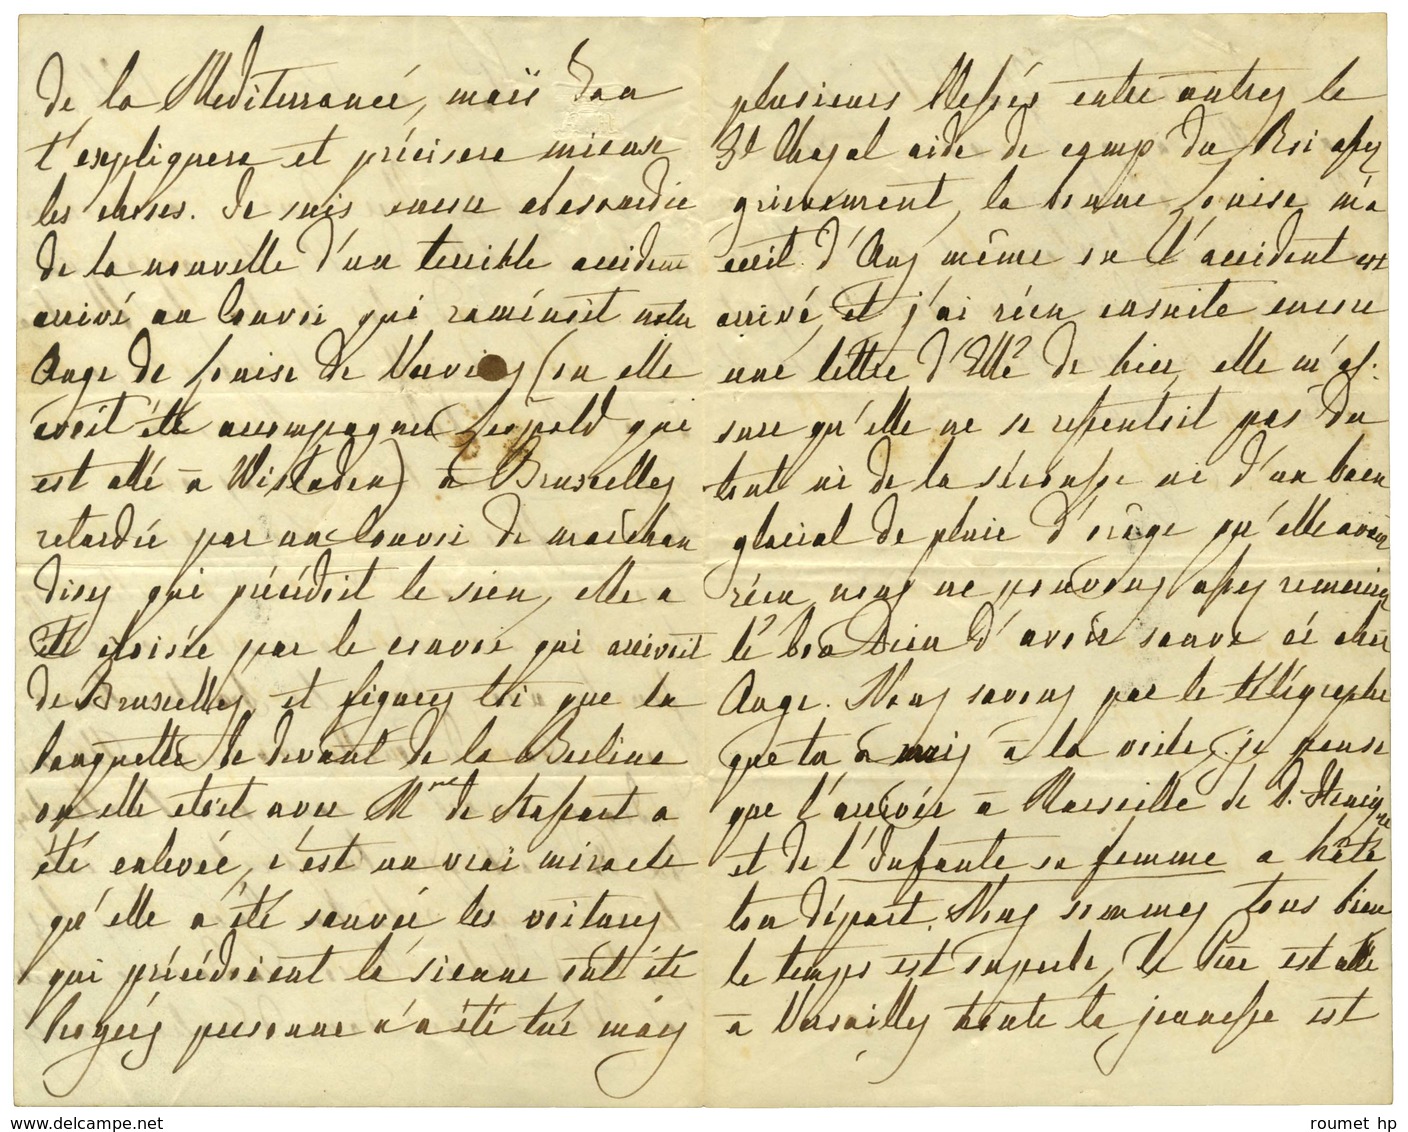 de la Mediterraneé, mais Don
t'expliquera et précisera mieux
les choses. Je suis encore abasourdie
de la nouvelle d'un terrible accident
arrivé au Convoi qui raménoit notre
Ange de Louise de Verviers (ou elle
avoit été accompagner Leopold qui
est allé a Wisbaden) a Bruxelles
retardée par un Convoi de marchan
dises qui précédoit le sien, elle a
été croisée par le convoi qui arrivoit
de Bruxelles, et figures toi que la
banquette de devant de la Berline
ou elle etoit avec Mme de Stassart a
été enlevée, c'est un vrai miracle
qu'elle a été sauvée les voitures
qui précédoient la sienne ont été
broyées personne n'a été tué mais
plusieurs blessés entre autres le
Gl Chazal aide de camp du Roi assez
grievement, la bonne Louise m'a
ecrit d'Ans même ou l'accident est
arrivé, et j'ai réçu ensuite encore
une lettre d'Elle de hier, elle m'as:
sure qu'elle ne se ressentoit pas du
tout ni de la sécousse ni d'un bain
glacial de pluie d'orage qu'elle avoit
réçu, nous ne pouvons assez remercier
le bon Dieu d'avoir sauvé ce cher
Ange. Nous savons par le téléegraphe
que tu a mis à la voile, je pense
que l'arrivée a Marseille de D. Henrique
et de l'Infante sa femme a hâté
ton départ. Nous sommes tous bien
le temps est superbe, le Père est allé
a Versailles toute la jeunesse est
roumet hp
www.delcampe.net